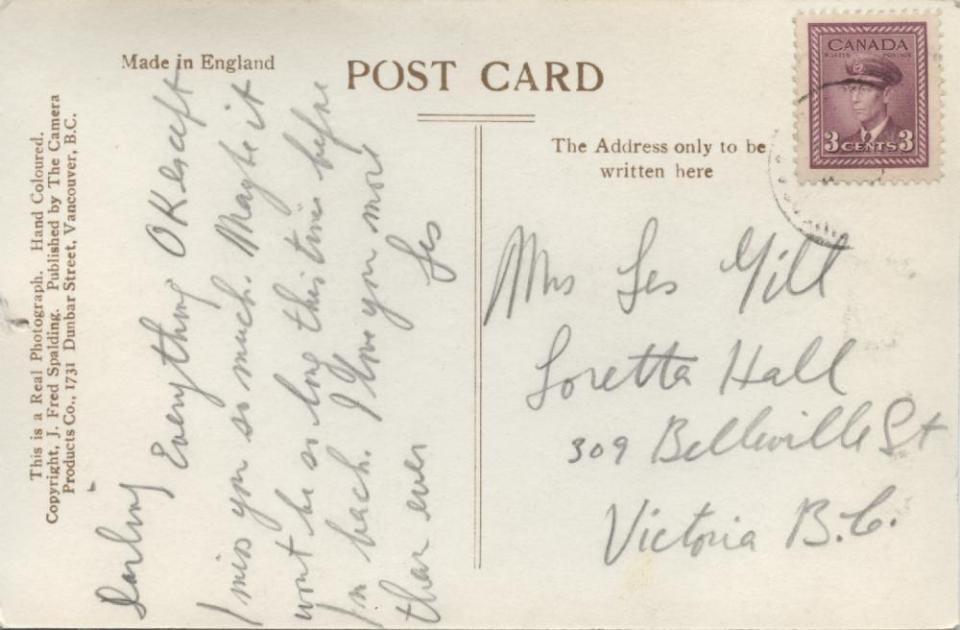 Made in England
POST CARD
This is a Real Photograph. Hand Coloured.
Copyright, J. Fred Spalding. Published by The Camera
Products Co., 1731 Dunbar Street, Vancouver, B.C.
The Address only to be
written here
CANADA
3 CENTS 3
Darling
Everything OK except
I miss you so much. Maybe it
wont be so long this time before
Im back. I love you more
than ever
Les
Mrs Les Gill
Loretta Hall
309 Belleville St
Victoria B.C.